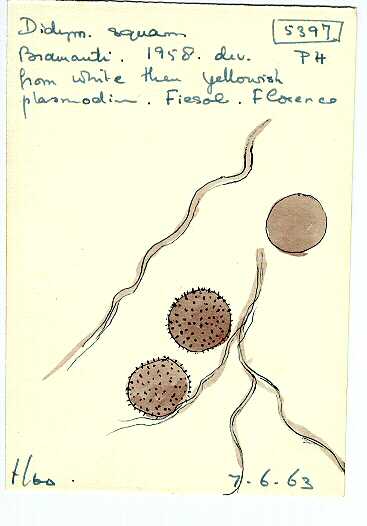 Didym. squam
5397
Bramanti. 1958. dev.
PH
from white then yellowish
plasmodium. Fiesole. Florence
7.6.63